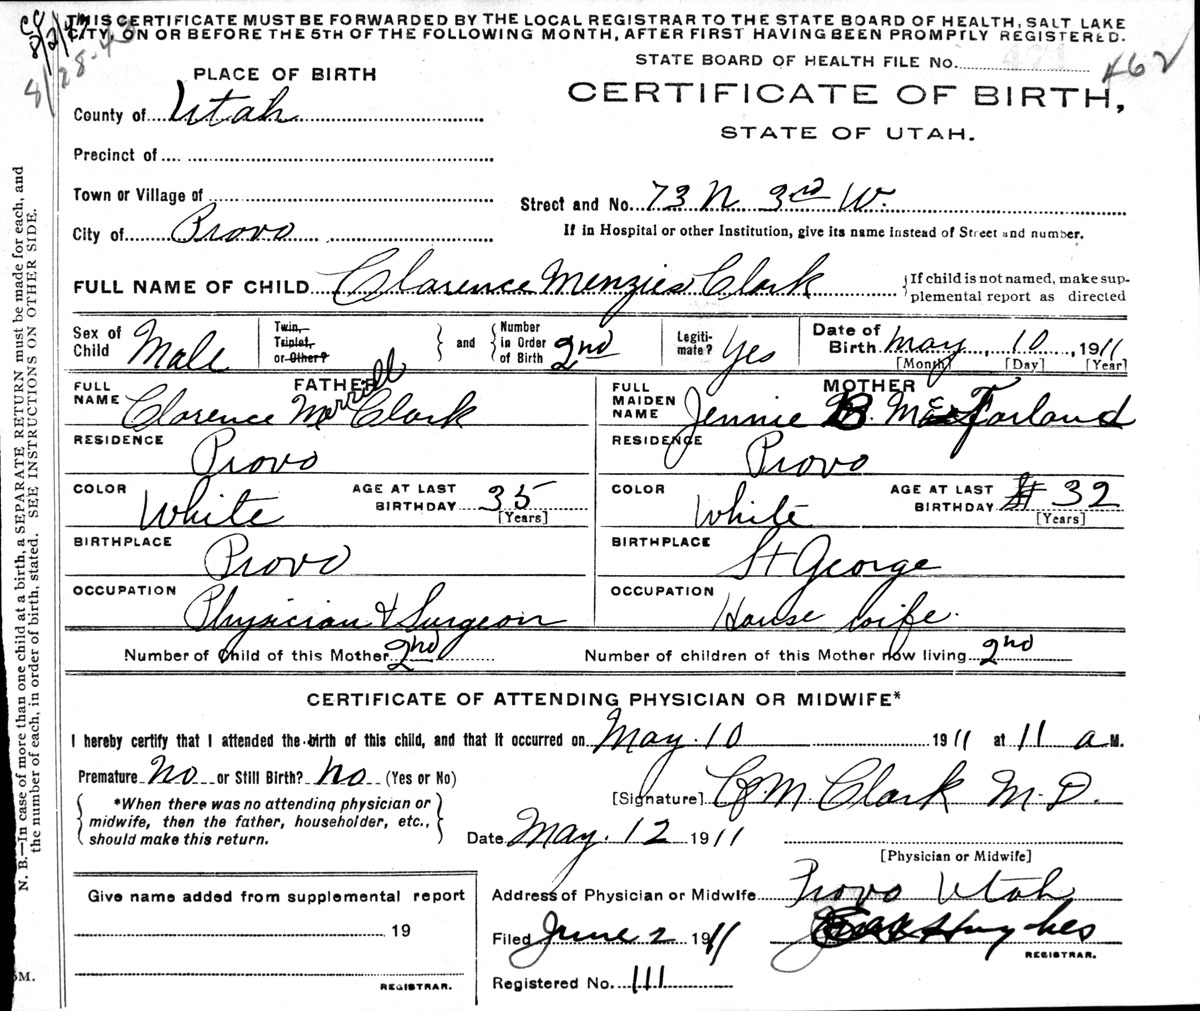 THIS CERTIFICATE MUST BE FORWARDED BY THE LOCAL REGISTRAR TO THE STATE BOARD OF HEALTH, SALT LAKE
CITY, ON OR BEFORE THE 5TH OF THE FOLLOWING MONTH, AFTER FIRST HAVING BEEN PROMPTLY REGISTERED.
8/28-43
STATE BOARD OF HEALTH FILE NO. 462
PLACE OF BIRTH
CERTIFICATE OF BIRTH,
STATE OF UTAH.
County of Utah
Precinct of
Town or Village of
Street and No. 73 N 3rd W.
City of Provo
If in Hospital or other Institution, give its name instead of Street and number.
FULL NAME OF CHILD Clarence Menzies Clark
{If child is not named, make sup-
plemental report as directed
Sex of Child Male
Twin, Triplet, or Other?
and
Number in Order of Birth 2nd
Legiti-mate? Yes
Date of Birth May, 10, 1911
[Month] [Day] [Year]
FATHER
FULL NAME Clarence Merrell Clark
MOTHER
FULL MAIDEN NAME Jennie B. McFarland
RESIDENCE Provo
RESIDENCE Provo
COLOR White
AGE AT LAST BIRTHDAY 35
[Years]
COLOR White
AGE AT LAST BIRTHDAY 32
[Years]
BIRTHPLACE Provo
BIRTHPLACE St George
OCCUPATION Physician & Surgeon
OCCUPATION House wife.
Number of Child of this Mother 2nd
Number of children of this Mother now living 2nd
CERTIFICATE OF ATTENDING PHYSICIAN OR MIDWIFE*
I hereby certify that I attended the birth of this child, and that it occurred on May. 10 1911 at 11 a M.
Premature No or Still Birth? No (Yes or No)
*When there was no attending physician or
midwife, then the father, householder, etc.,
should make this return.
[Signature] C. M. Clark M. D.
Date May. 12 1911
[Physician or Midwife]
Give name added from supplemental report
19
REGISTRAR.
Address of Physician or Midwife Provo Utah
Filed June 2 1911
Hughes
REGISTRAR.
Registered No. 111
N. B.—In case of more than one child at a birth, a SEPARATE RETURN must be made for each, and
the number of each, in order of birth, stated. SEE INSTRUCTIONS ON OTHER SIDE.
5M.